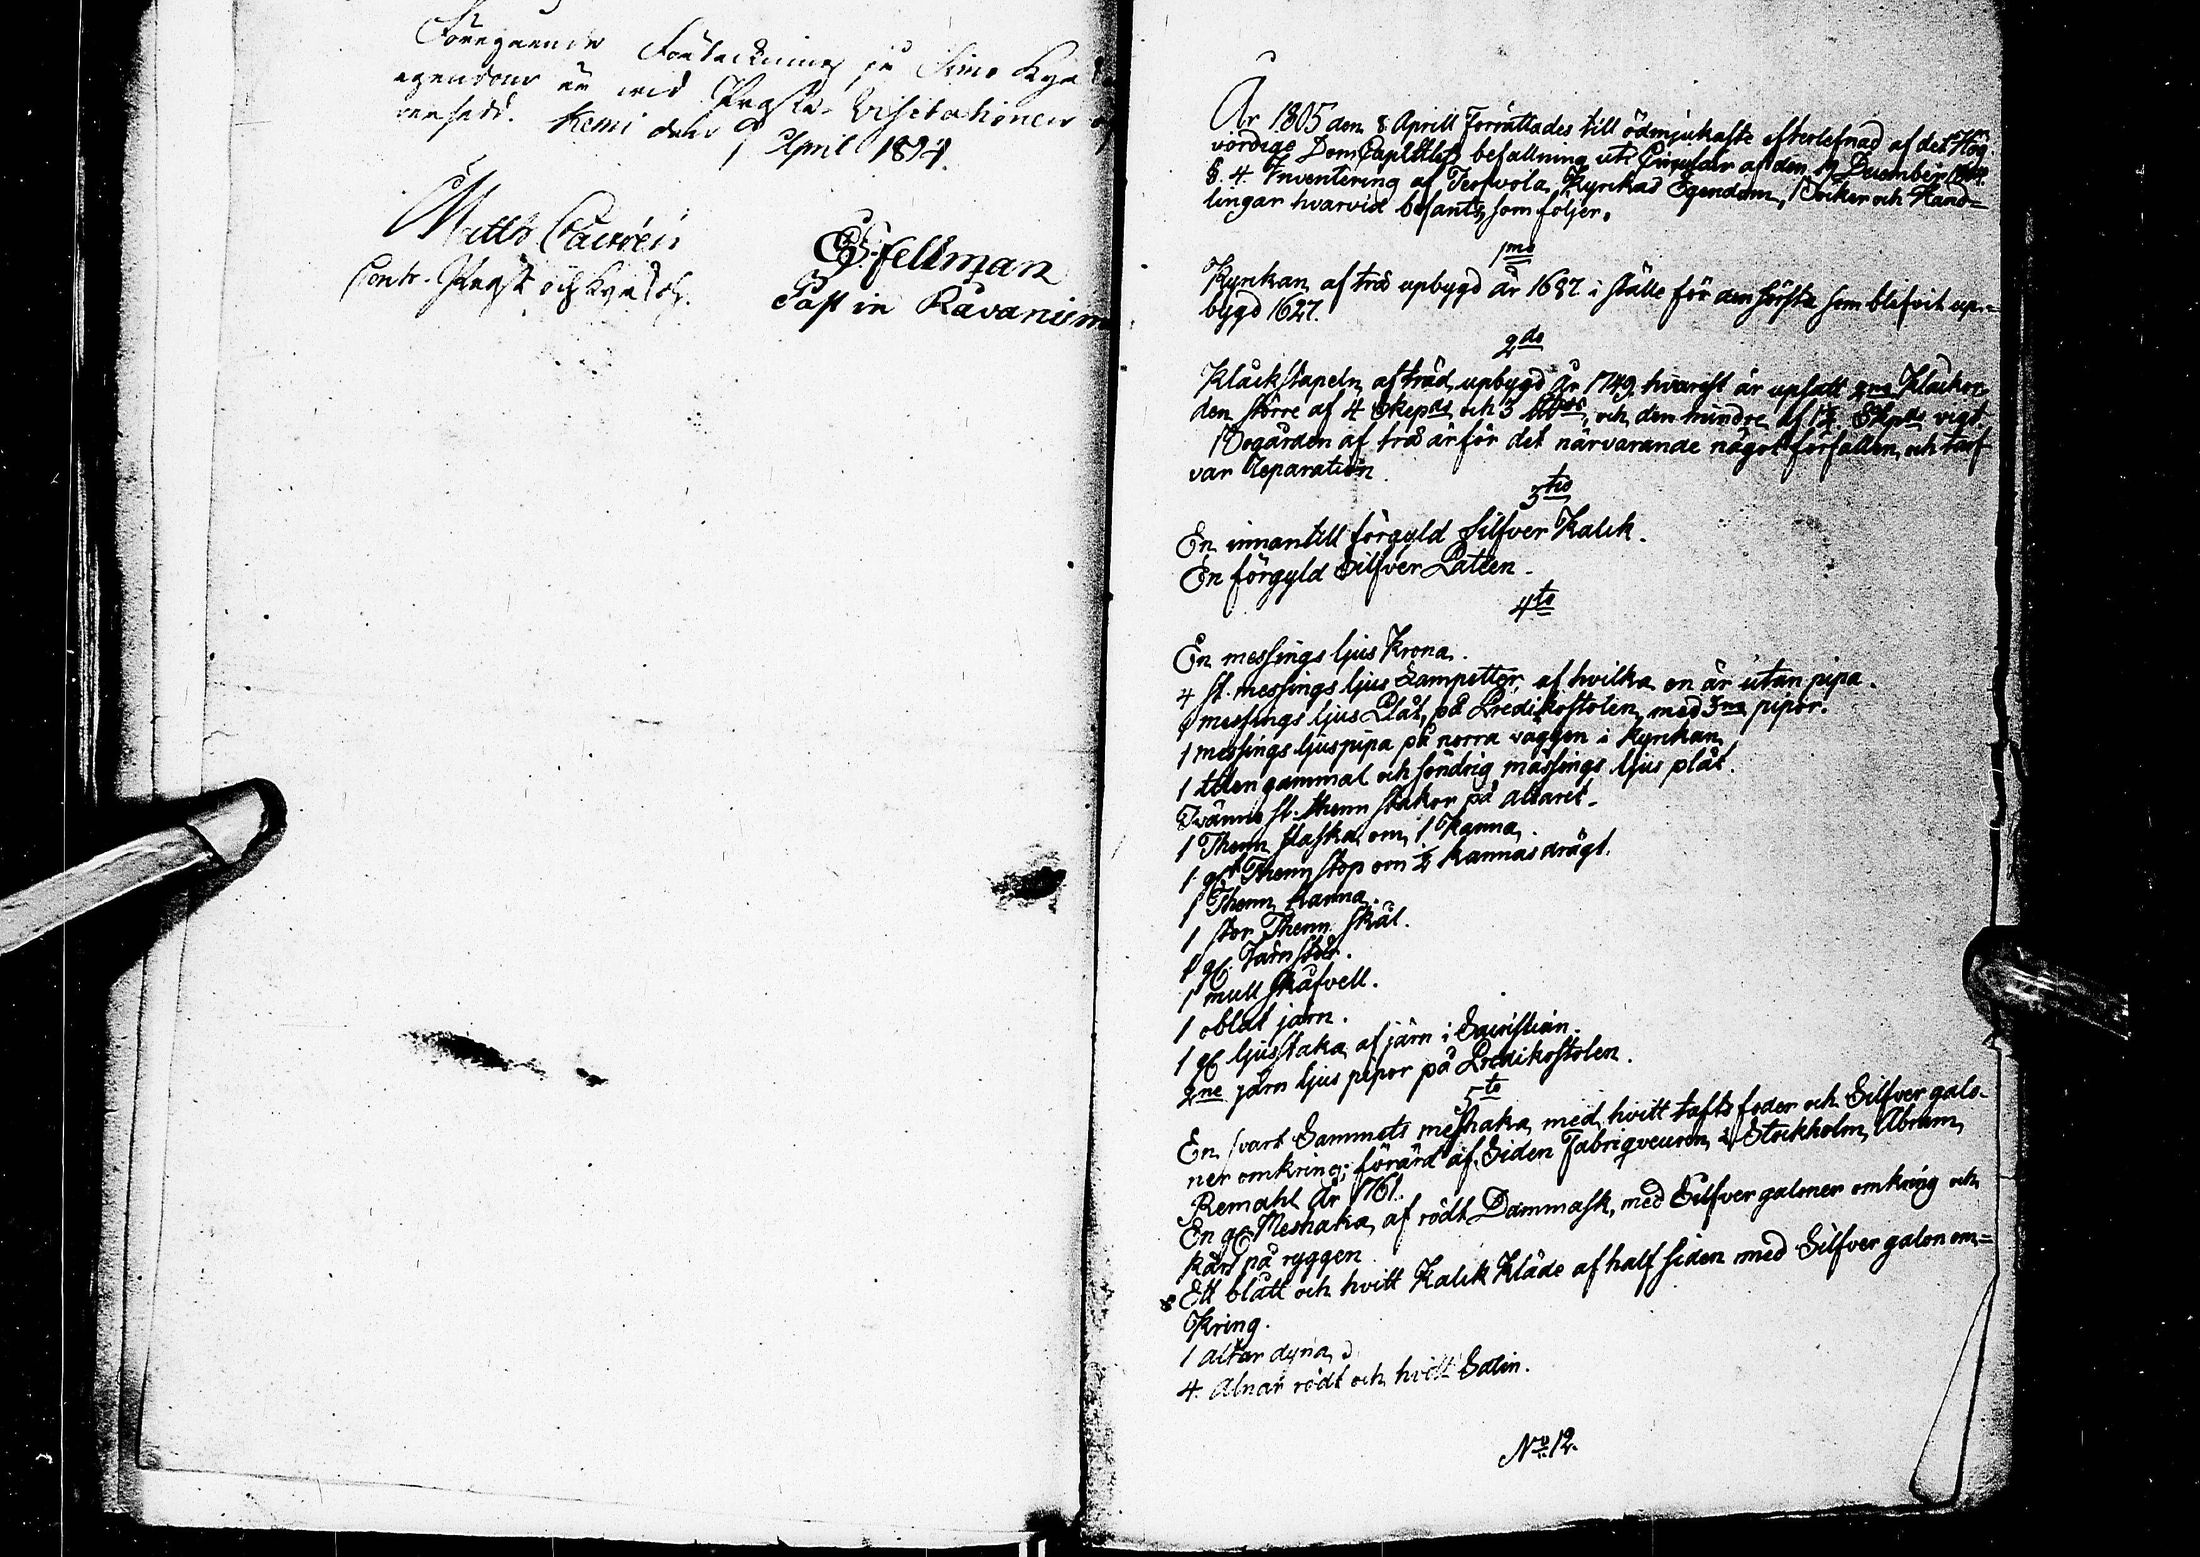 Föregående Förteckning på Simo Kyrk
egendom är wid Prosts-Visitationen
Kemi den April 1824.
Matts Castrén
Contr. Prost och Kyrkoh.
E: Fellman
Past in Råvaniem
År 1805 den 8 Aprill Förrättades till ödmjukaste efterlefnad af det Hög
vördige DomCapitlets befallning uti Circulair af den 19 December
§. 4. Inventering af Tervola Kyrkas Egendom, Böcker och Hand=
lingar hvarvid befants som följer.
1mo
Kyrkan af träd upbygd år 1687 i ställe för den första som blefvit up=
bygd 1627.
2do
Klåckstapeln af träd upbygd år 1749 hvarest är upsatt 2ne Klåckor
den större af 4 Skepd och 3 och den mindre af 1½ Skpd vigt.
Bogården af träd är för det närvarande något förfallen och tarf
var Reparation
3tio
En innantill förgyld Silfver Kalk.
En förgyld Silfver Pateen.
4to
En messings ljus Krona.
4 st. messings ljus Lampetter af hvilka en är utan pipa.
1 messings ljus Plåt, på Predikostolen med 3ne pipor.
1 messings ljuspipa på norra väggen i Kyrkan
1 liten gammal och söndrig mässings ljus plåt.
Tvänne st. thenn stakor på altaret.
1 Thenn flaska om 1 Kanna
1 gl Thenn stop om ½ Kannas drägt.
1 Thenn Kanna.
1 stor Thenn skål.
1 gl. Järnstör.
1 mull skåfvell.
1 oblat järn.
1 gl ljusstaka af järn i Sacristian.
2ne järn ljus pipor på Predikostolen.
5to
En svart Sammets meshaka med hvitt tafts foder och Silfver galo-
ner omkring; förärd af Siden Fabriqveuren i Stockholm Abram
Remahl År 1761.
En gl Meshaka af rödt Dammask, med Silfver galoner omkring och
kårs på ryggen
Ett blått och hvitt Kalk Kläde af half siden med Silfver galon om=
Kring.
1 altar dyna
4. Alnar rödt och hvitt Satin.
No 12.